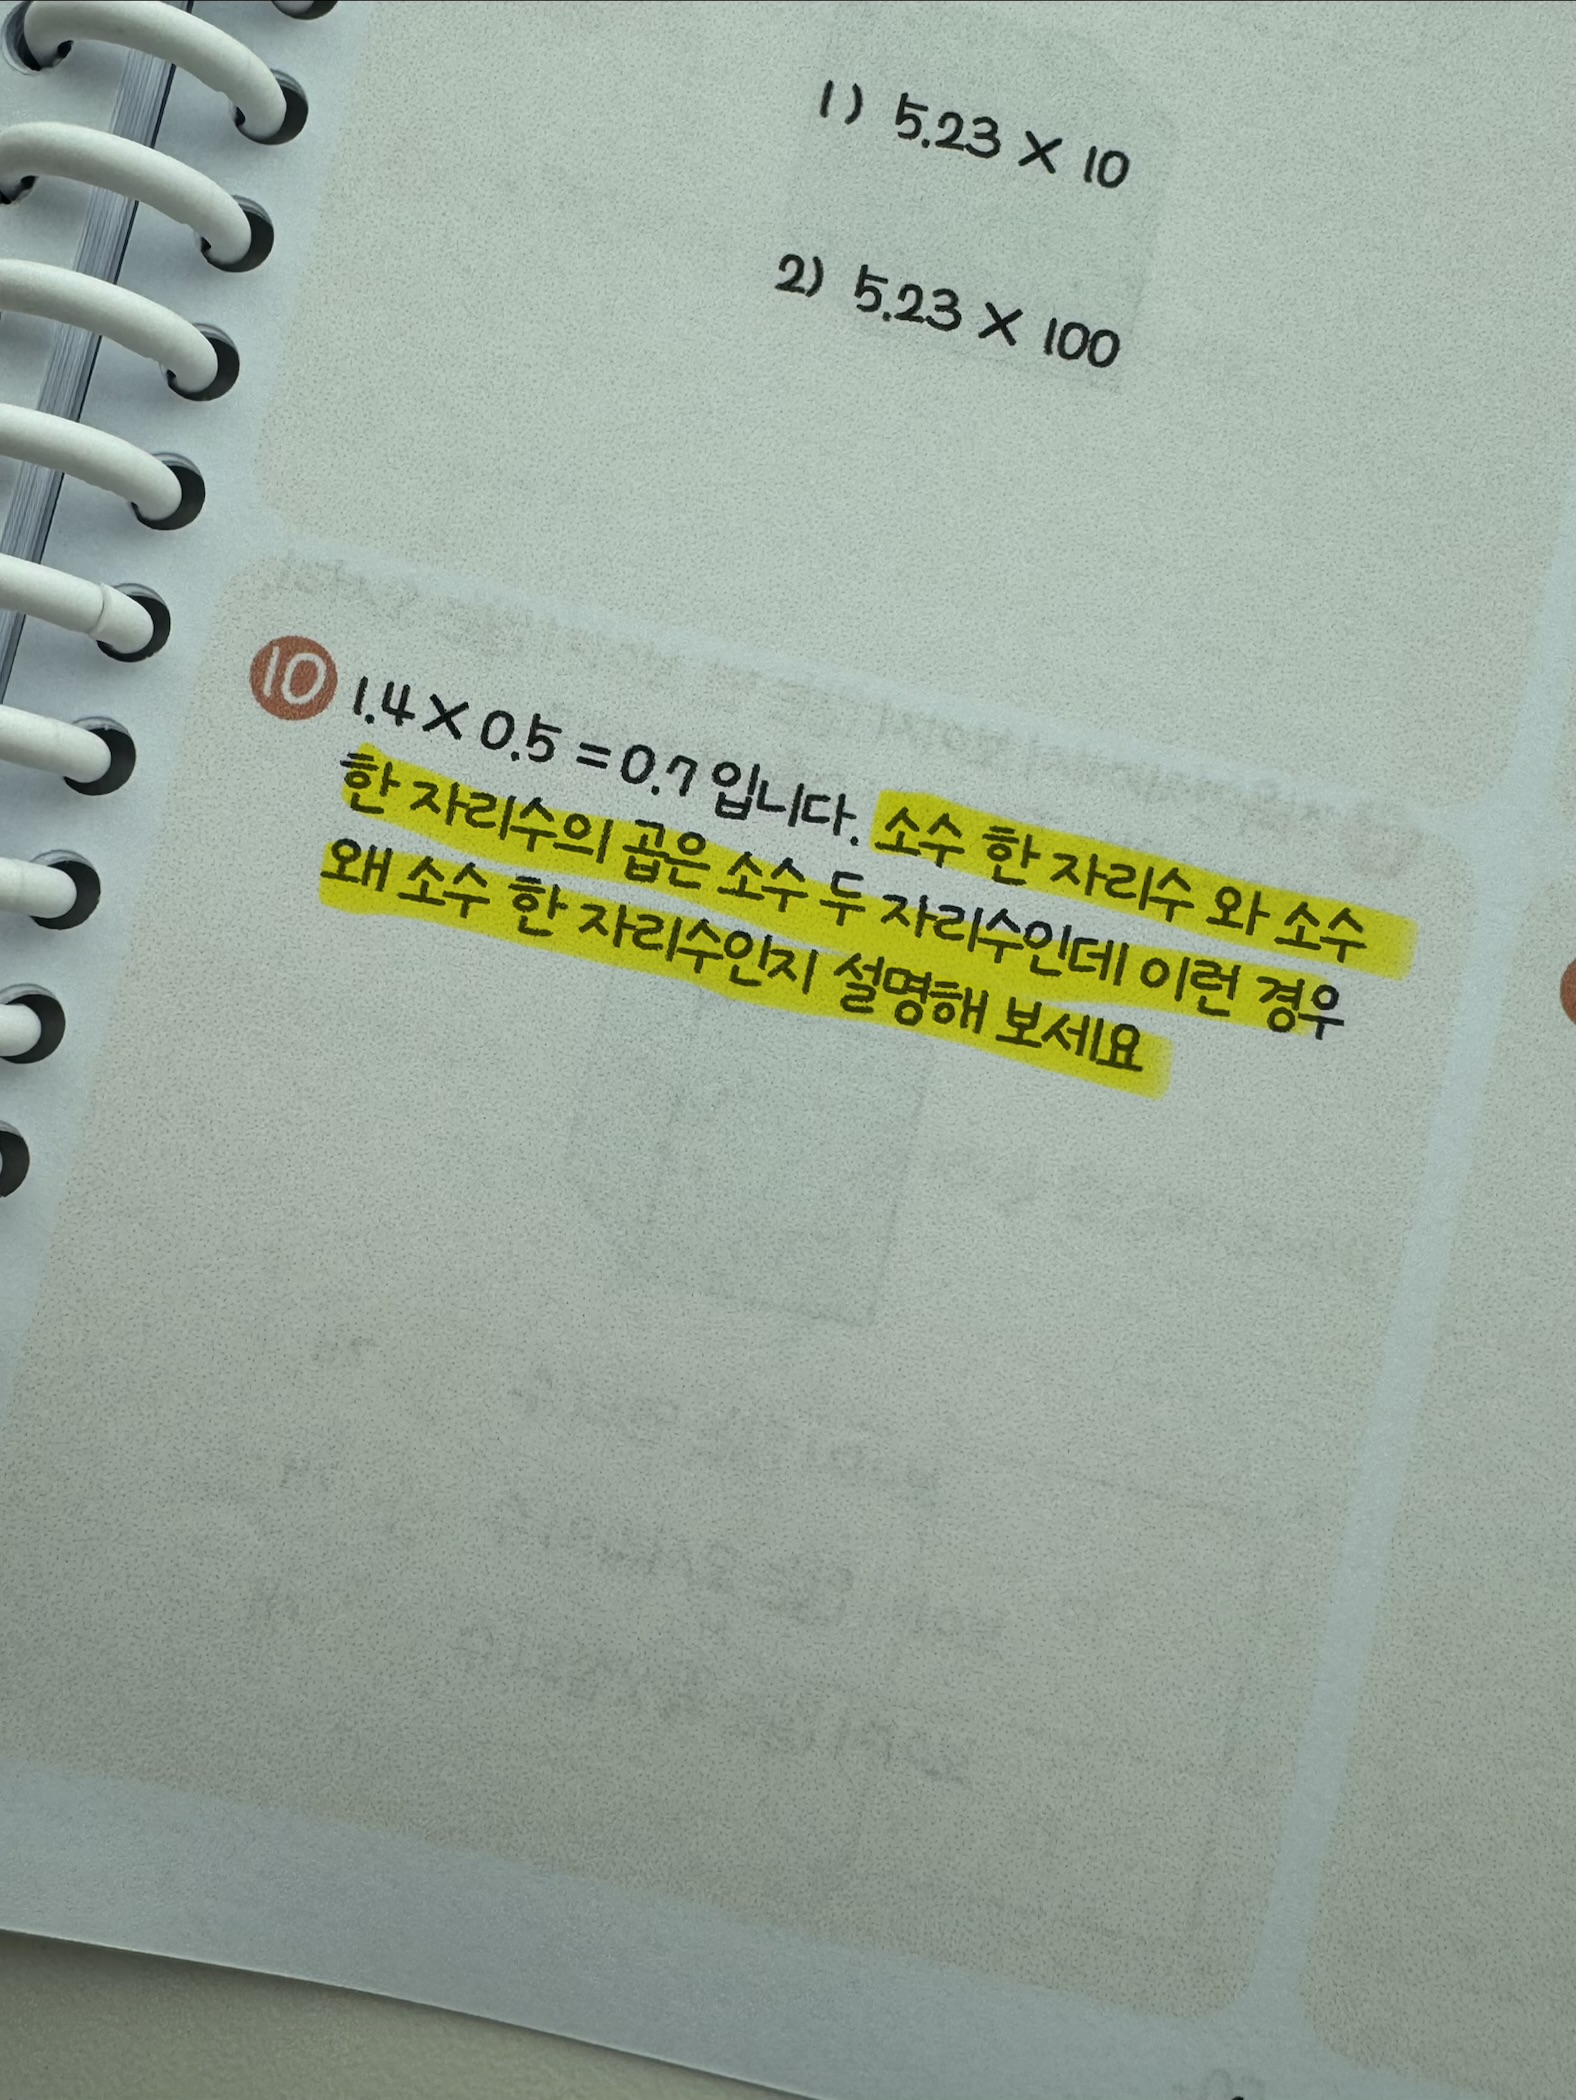 1) 5.23 × 10
2) 5.23 × 100
10 1.4 × 0.5 = 0.7 입니다. 소수 한 자리수 와 소수
한 자리수의 곱은 소수 두 자리수인데 이런 경우
왜 소수 한 자리수인지 설명해 보세요